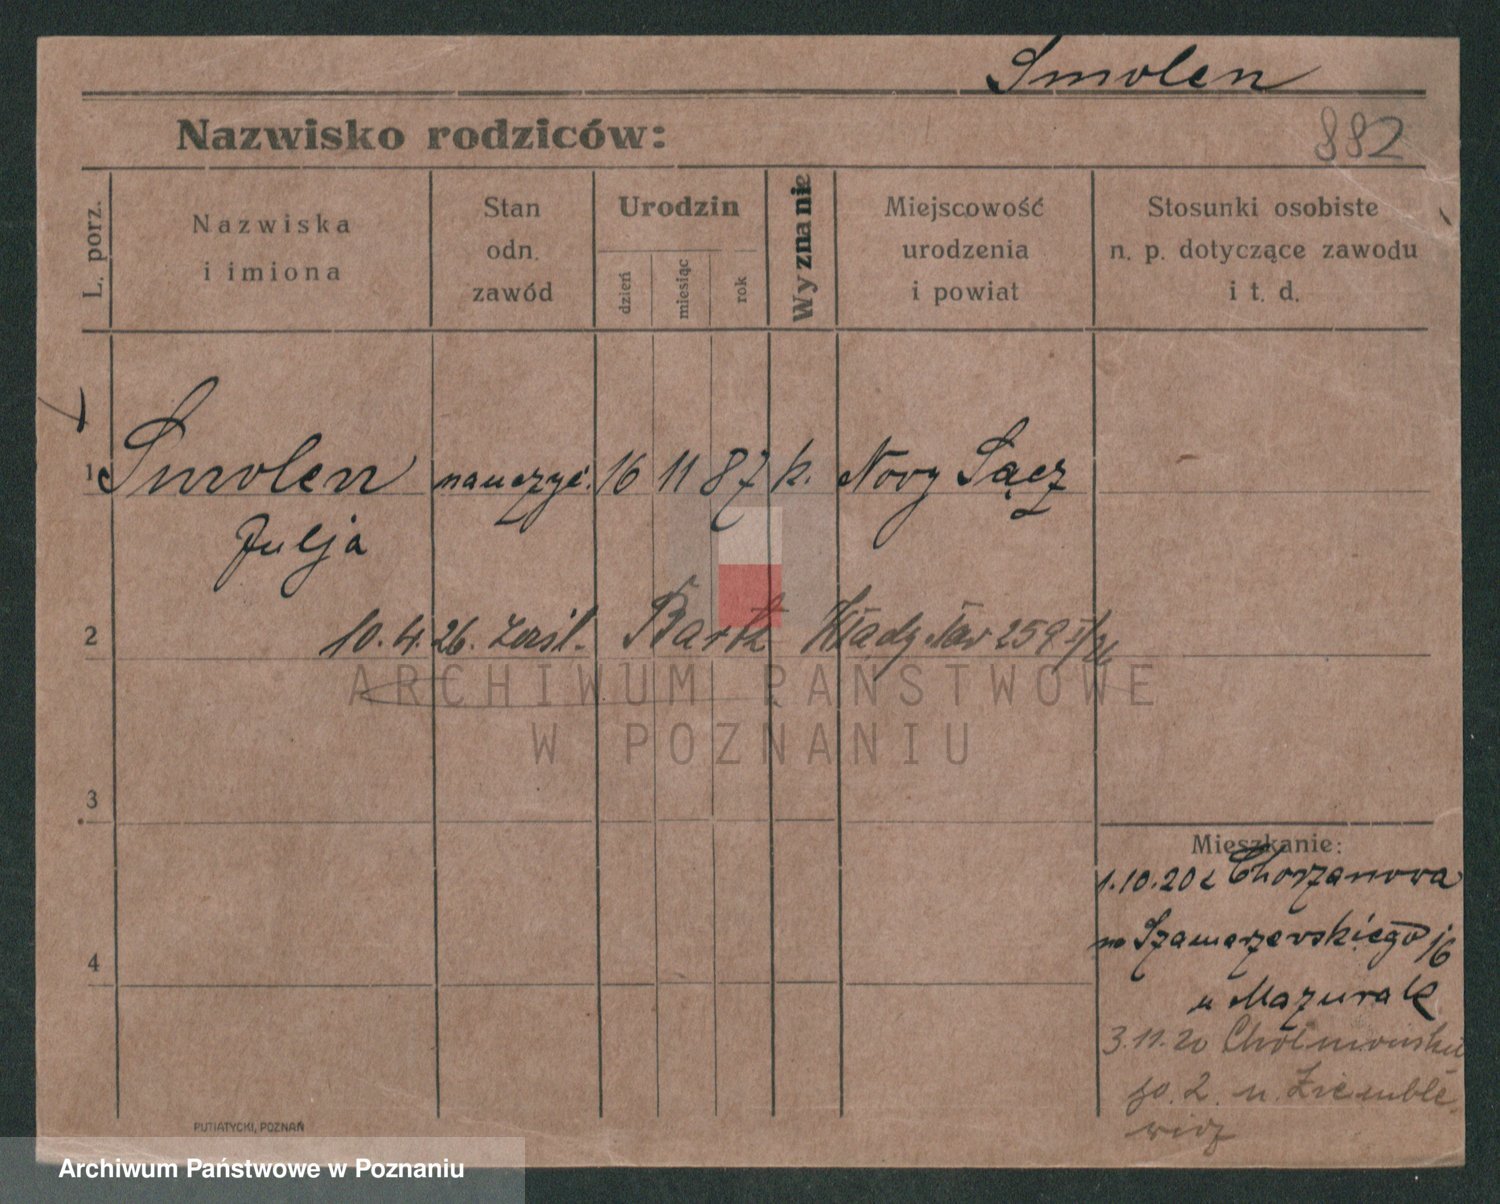 Smolen
Nazwisko rodziców:
882
L. porz.
Nazwiska
i imiona
Stan
odn.
zawód
Urodzin
dzień
miesiąc
rok
Wyznanie
Miejscowość
urodzenia
i powiat
Stosunki osobiste
n. p. dotyczące zawodu
i t. d.
1 Smolen nauczyć. 16 11 87 k. Nowy Sącz
Julja
2 10. 4. 26. Bartk 259
ARCHIWUM PAŃSTWOWE
W POZNANIU
3
Mieszkanie:
1.10.20 z Chorzanowa
Szamarzewskiego 16
4
u Mazurak
3.11.20
2. u.
PUTIATYCKI, POZNAŃ
Archiwum Państwowe w Poznaniu